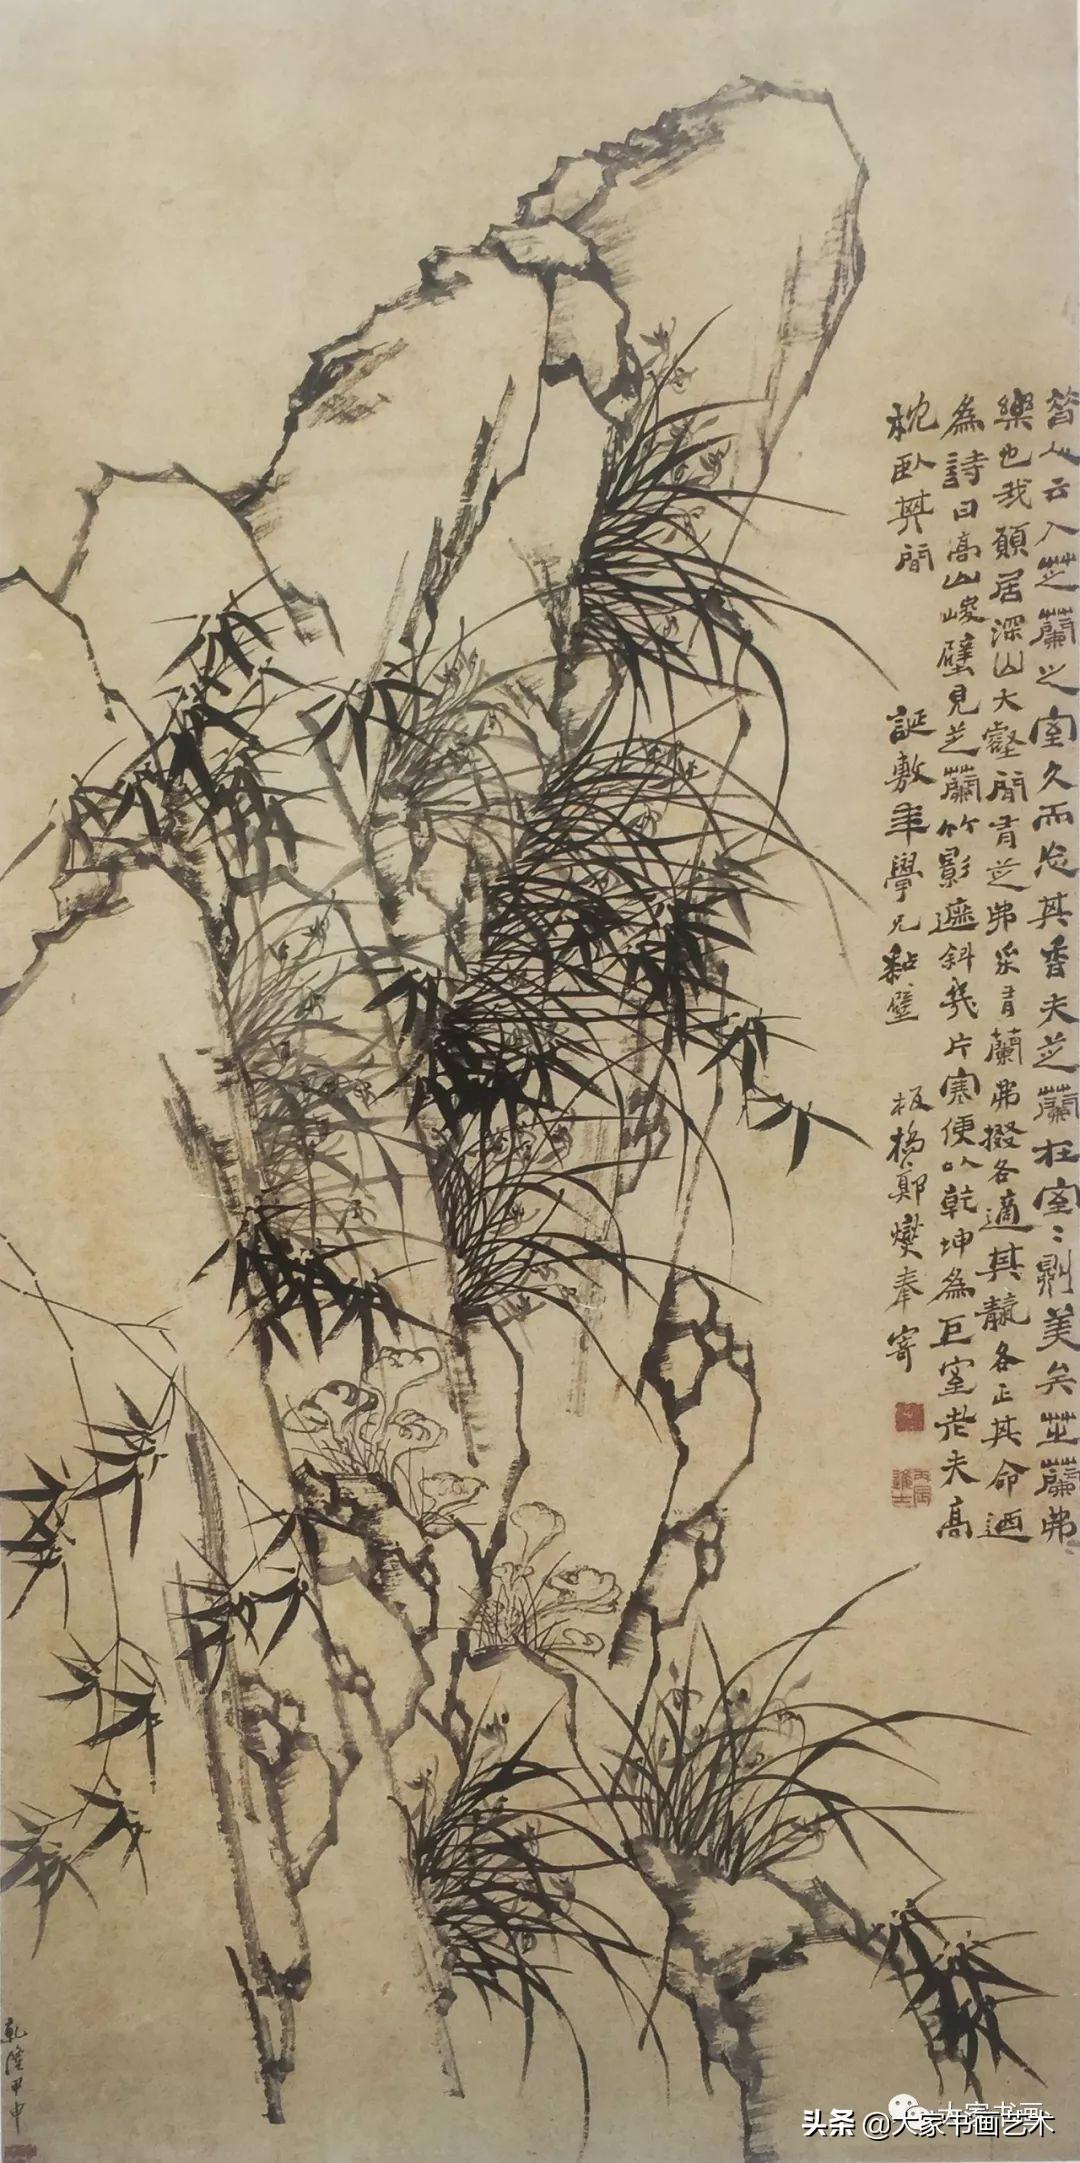 昔人云入芝蘭之室久而忘其香夫芝蘭在室〻則美矣芝蘭弗
樂也我願居深山大壑間有芝弗采有蘭弗掇各適其各正其命迺
為詩曰高山峻壁見芝蘭竹影遮斜幾片寒便以乾坤為巨室老夫高
枕臥其間 誕敷年學兄黏壁 板橋鄭燮奉寄
丙辰進士
乾隆甲申
大家书画
头条 @大家书画艺术